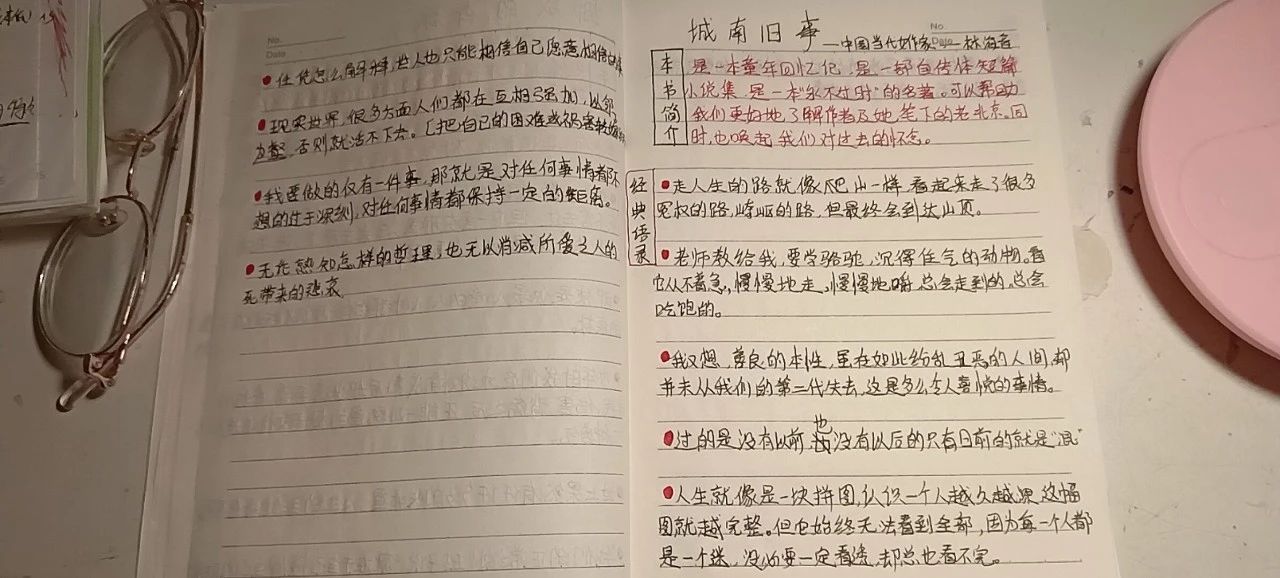 No.
Date
●任凭怎么解释,世人也只能相信自己愿意相信的事
●现实世界,很多方面人们都在互相强加,以邻
为壑,否则就活不下去。[把自己的困难或祸害转嫁
●我要做的仅有一件事,那就是对任何事情都不
想的过于深刻,对任何事情都保持一定的距离。
●无论熟知怎样的哲理,也无以消减所爱之人的
死带来的悲哀
城南旧事
No.
Date
—中国当代女作家 林海音
本书简介
是一本童年回忆记,是一部自传体短篇
小说集,是一本“永不过时”的名著。可以帮助
我们更好地了解作者及她笔下的老北京。同
时,也唤起我们对过去的怀念。
经典语录
●走人生的路就像爬山一样,看起来走了很多
冤枉的路,崎岖的路,但最终会到达山顶。
●老师教给我,要学骆驼,沉得住气的动物。看
它从不着急,慢慢地走,慢慢地嚼,总会走到的,总会
吃饱的。
●我又想,善良的本性,虽在如此纷乱丑恶的人间,却
并未从我们的第二代失去,这是多么令人喜悦的事情。
●过的是没有以前也没有以后的只有目前的就是“混”
●人生就像是一块拼图,认识一个人越久越深,这幅
图就越完整。但它始终无法看到全部,因为每一个人都
是一个迷,没必要一定看透,却总也看不完。